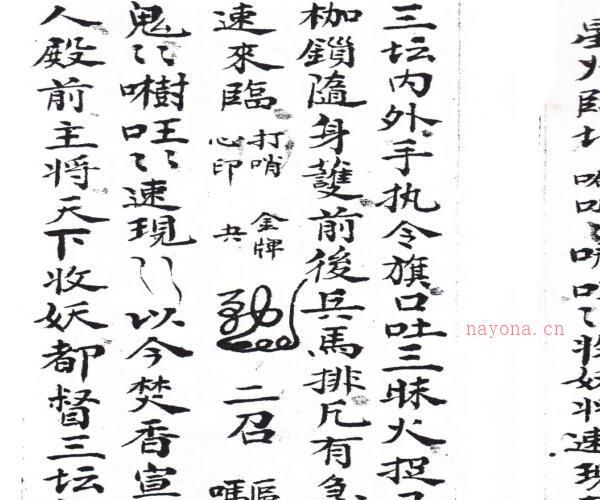 星火臨坛
收妖将速現
三坛内外手执令旗口吐三昧火捉
枷鎖隨身護前後兵馬排凡有急
速來臨 打哨 心印 金牌 兵 勅 二召
鬼〻㘗呾〻速現〻以今焚香宣
人殿前主将天下收妖都督三坛
nayona.cn